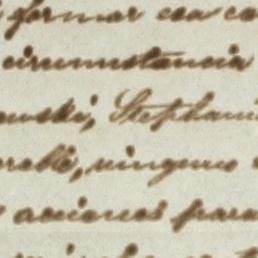 formar esa co
circunstancia
owski, Stephani
orable, ninguno
acciones para